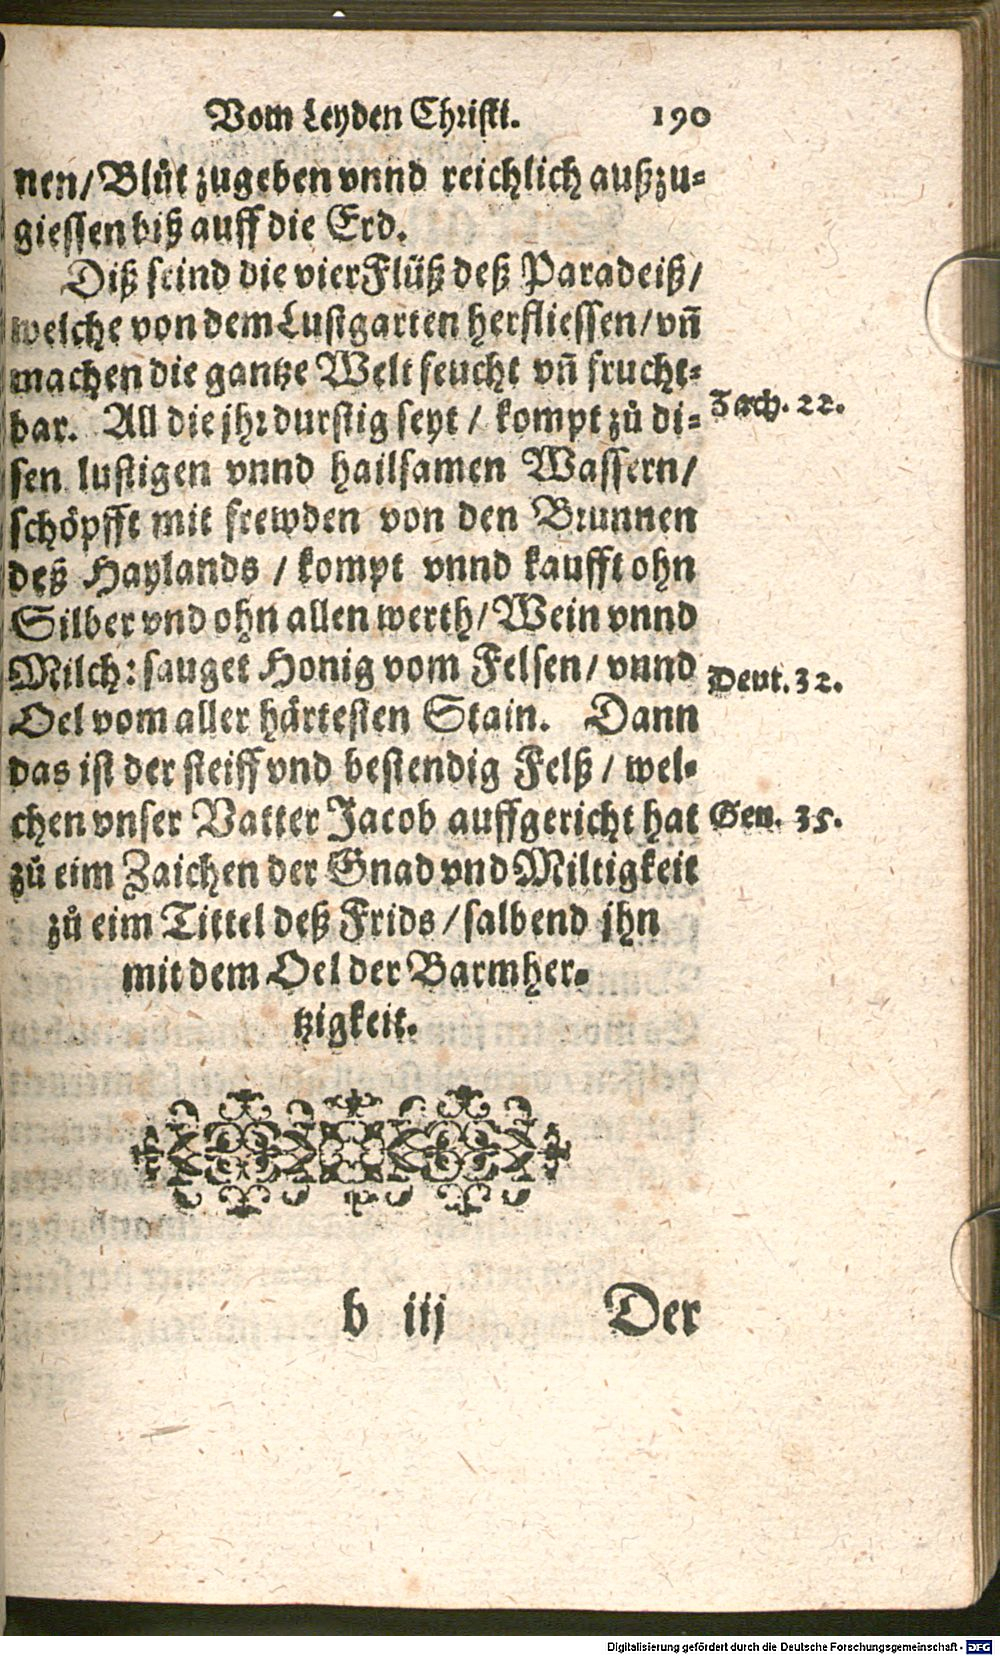 Vom Leyden Christi. 190
nen/ Blůt zugeben vnnd reichlich außzu-
giessen biß auff die Erd.
Diß seind die vier Flüß deß Paradeiß/
welche von dem Lustgarten herfliessen/ vñ
machen die gantze Welt feucht vñ frucht-
bar. All die jhr durstig seyt / kompt zů di-
Zach. 22.
sen lustigen vnnd hailsamen Wassern/
schöpfft mit frewden von den Brunnen
deß Haylands / kompt vnnd kaufft ohn
Silber vnd ohn allen werth/ Wein vnnd
Milch: sauget Honig vom Felsen/ vnnd
Deut. 32.
Oel vom aller härtesten Stain. Dann
das ist der steiff vnd bestendig Felß / wel-
chen vnser Vatter Jacob auffgericht hat
Gen. 35.
zů eim Zaichen der Gnad vnd Miltigkeit
zů eim Tittel deß Frids / salbend jhn
mit dem Oel der Barmher-
tzigkeit.
b iij Der
Digitalisierung gefördert durch die Deutsche Forschungsgemeinschaft - DFG